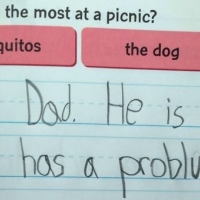 the most at a picnic?
quitos
the dog
Dad. He is
has a problu